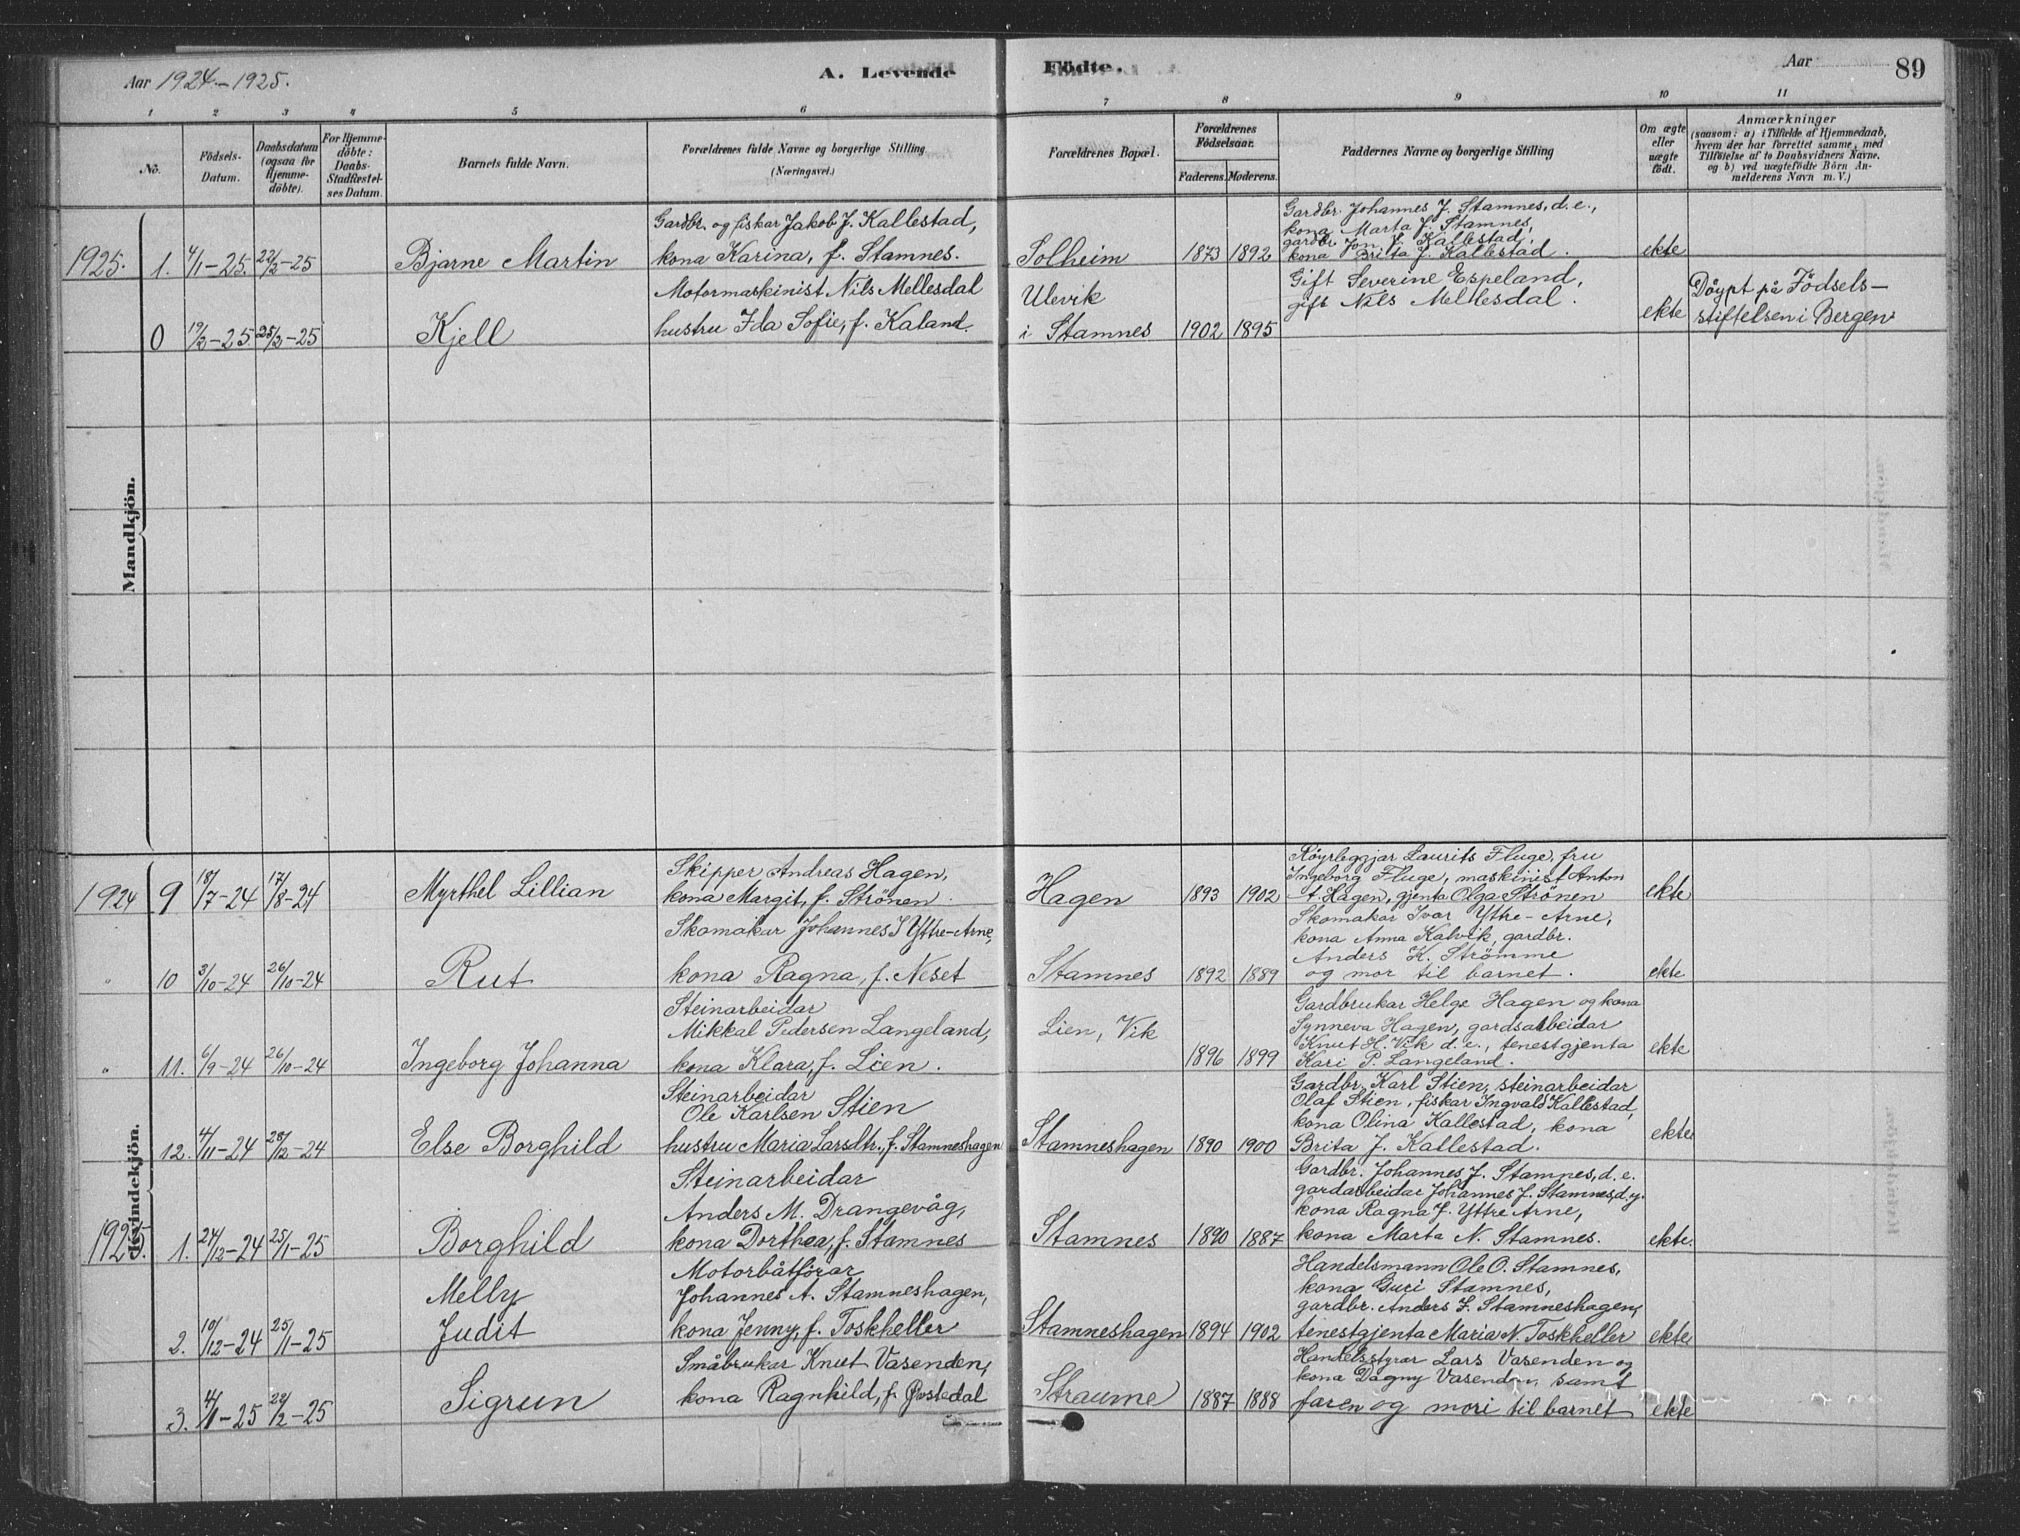 Aar 1924-1925.
A. Levende Födte.
Aar
89
1 2 3 4 5 6 7 8 9 10 11
No.
Födsels-Datum.
Daabsdatum (ogsaa for Hjemme-döbte).
For Hjemme-döbte: Daabs-Stadfæstel-ses Datum.
Barnets fulde Navn.
Forældrenes fulde Navne og borgerlige Stilling (Næringsvei.)
Forældrenes Bopæl.
Forældrenes Födselsaar.
Faderens. Moderens.
Faddernes Navne og borgerlige Stilling
Om ægte eller uægte födt.
Anmærkninger
(saasom: a) i Tilfælde af Hjemmedaab, hvem der har forrettet samme, med Tilföielse af to Daabsvidners Navne, og b) ved uægtefödte Börn Anmelderens Navn m. V.)
Mandkjön.
1925. 1. 4/1-25. 22/2-25 Bjarne Martin
Gardbr. og fiskar Jakob J. Kallestad,
kona Karina, f. Stamnes.
Solheim 1873 1892
Gardbr. Johannes J. Stamnes, d.e.,
kona Marta J. Stamnes,
gardbr. Jon. J. Kallestad,
kona Brita J. Kallestad.
ekte
0 19/3-25 25/3-25 Kjell
Motormaskinist Nils Mellesdal
hustru Ida Sofie, f. Kaland
Ulevik
i Stamnes 1902 1895
Gift Severine Espeland,
gift Nils Mellesdal.
ekte
Döypt på Födsels-
stiftelsen i Bergen
Kvindekjön.
1924 9 18/7-24 17/8-24 Myrthel Lillian
Skipper Andreas Hagen,
kona Margit, f. Strönen.
Hagen 1893 1902
Röyrleggjar Laurits Fluge, fru
Ingeborg Fluge, maskinist Anton
A. Hagen, gjenta Olga Strönen
ekte
" 10 3/10-24 26/10-24 Rut
Skomakar Johannes I Yttre-Arne,
kona Ragna, f. Neset
Stamnes 1892 1889
Skomakar Ivar Ytre-Arne,
kona Anna Kalvik, gardbr.
Anders K. Strömme
og mor til barnet.
ekte
" 11. 6/9-24 26/10-24 Ingeborg Johanna
Steinarbeidar
Mikkal Pedersen Langeland,
kona Klara, f. Lien.
Lien, Vik
1896 1899
Gardbrukar Helge Hagen og kona
Synneva Hagen, gardsarbeidar
Knut H. Vik d.e., tenestgjenta
Kari P. Langeland.
ekte
12. 4/11-24 28/12-24 Else Borghild
Steinarbeidar
Ole Karlsen Stien
hustru Maria Larsdtr., f. Stamneshagen
Stamneshagen 1890 1900
Gardbr. Karl Stien, steinarbeidar
Olaf Stien, fiskar Ingvald Kallestad,
kona Olina Kallestad, kona
Brita J. Kallestad.
ekte
1925. 1. 24/12-24 25/1-25 Borghild
Steinarbeidar
Anders M. Drangevåg,
kona Dorthea, f. Stamnes
Stamnes 1890 1887
Gardbr. Johannes J. Stamnes, d.e.
gardarbeidar Johannes J. Stamnes, d.y.
kona Ragna J. Yttre Arne,
kona Marta N. Stamnes.
ekte.
2. 10/12-24 25/1-25 Melly
Judit
Motorbåtförar
Johannes A. Stamneshagen,
kona Jenny, f. Toskheller
Stamneshagen 1894 1902
Handelsmann Ole O. Stamnes,
kona Guri Stamnes,
gardbr. Anders J. Stamneshagen,
tenestgjenta Maria N. Toskheller
ekte
3. 4/1-25 22/2-25 Sigrun
Småbrukar Knut Vasenden,
kona Ragnhild, f. Øvstedal
Straume 1887 1888
Handelsstyrar Lars Vasenden og
kona Dagny Vasenden, samt
faren og mori til barnet
ekte